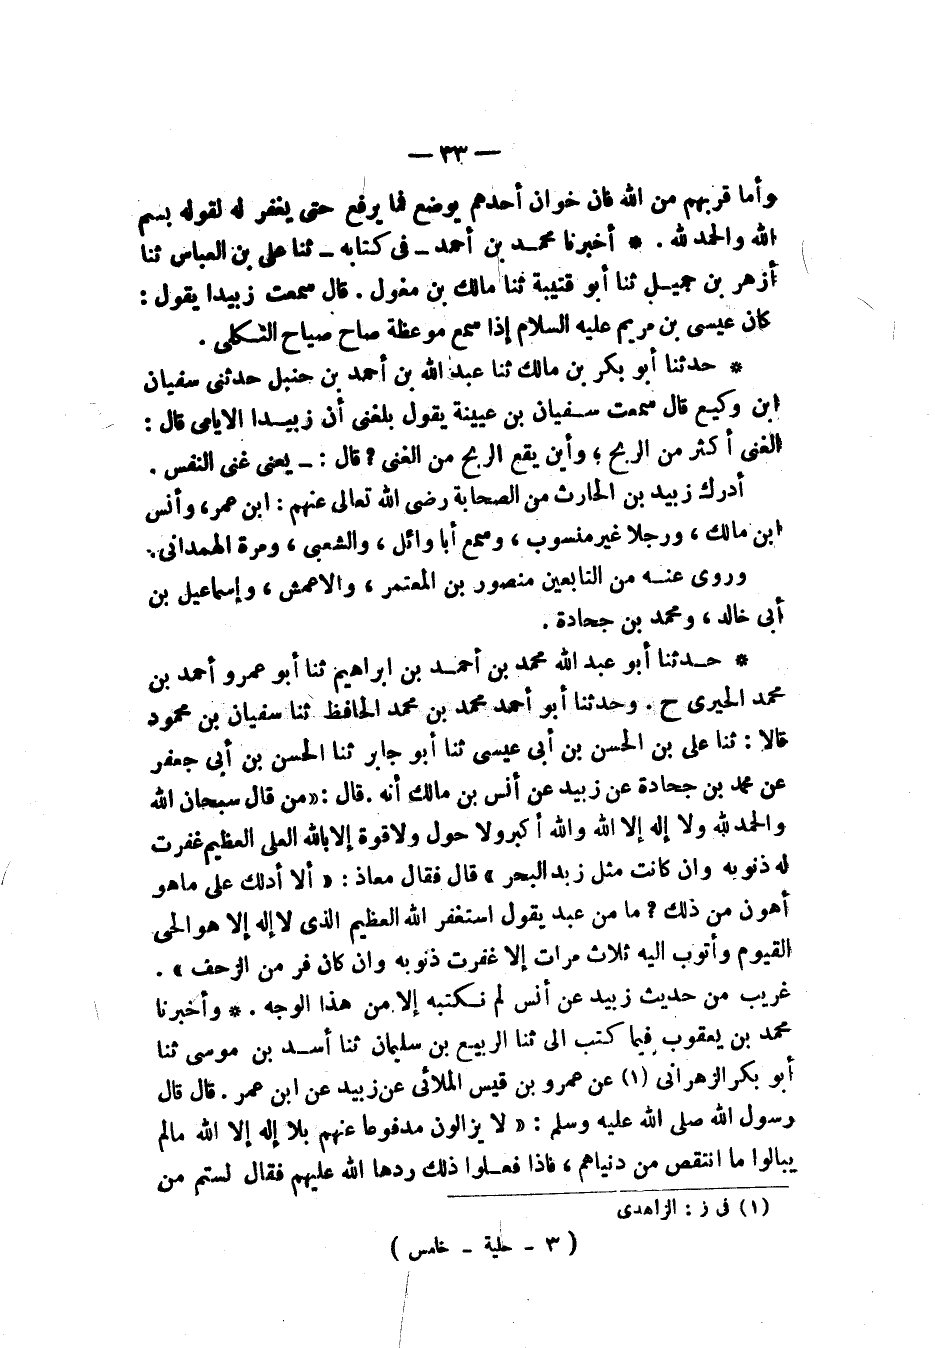 — ٣٣ —
وأما قربهم من الله فان خوان أحدهم يوضع فما يرفع حتى يغفر له لقوله بسم
الله والحمد لله . * أخبرنا محمد بن أحمد ـ فى كتابه ـ ثنا على بن العباس ثنا
أزهر بن جميل ثنا أبو قتيبة ثنا مالك بن مغول . قال سمعت زبيدا يقول :
كان عيسى بن مريم عليه السلام إذا سمع موعظة صاح صياح الثكلى .
* حدثنا أبو بكر بن مالك ثنا عبد الله بن أحمد بن حنبل حدثنى سفيان
ابن وكيع قال سمعت سفيان بن عيينة يقول بلغنى أن زبيدا الايامى قال :
الغنى أكثر من الربح ؛ وأين يقع الربح من الغنى ؟ قال : ـ يعنى غنى النفس .
أدرك زبيد بن الحارث من الصحابة رضى الله تعالى عنهم : ابن عمر، وأنس
ابن مالك ، ورجلا غير منسوب ، وسمع أبا وائل ، والشعبى ، ومرة الهمدانى .
وروى عنه من التابعين منصور بن المعتمر ، والاعمش ، وإسماعيل بن
أبى خالد ، ومحمد بن جحادة .
* حدثنا أبو عبد الله محمد بن أحمد بن ابراهيم ثنا أبو عمرو أحمد بن
محمد الحيرى ح . وحدثنا أبو أحمد محمد بن محمد الحافظ ثنا سفيان بن محمود
قالا : ثنا على بن الحسن بن أبى عيسى ثنا أبو جابر ثنا الحسن بن أبى جعفر
عن محمد بن جحادة عن زبيد عن أنس بن مالك أنه . قال : «من قال سبحان الله
والحمد لله ولا إله إلا الله والله أكبر ولا حول ولاقوة إلا بالله العلى العظيم غفرت
له ذنوبه وان كانت مثل زبد البحر » قال فقال معاذ : « ألا أدلك على ماهو
أهون من ذلك ؟ ما من عبد يقول استغفر الله العظيم الذى لاإله إلا هو الحى
القيوم وأتوب اليه ثلاث مرات إلا غفرت ذنوبه وان كان فر من الزحف » .
غريب من حديث زبيد عن أنس لم نكتبه إلا من هذا الوجه . * وأخبرنا
محمد بن يعقوب فيما كتب الى ثنا الربيع بن سليمان ثنا أسد بن موسى ثنا
أبو بكر الزهرانى (١) عن عمرو بن قيس الملائى عن زبيد عن ابن عمر . قال قال
رسول الله صلى الله عليه وسلم : « لا يزالون مدفوعا عنهم بلا إله إلا الله مالم
يبالوا ما انتقص من دنياهم ، فاذا فعلوا ذلك ردها الله عليهم فقال لستم من
(١) فى ز : الزاهدى
( ٣ ـ حلية ـ خامس )